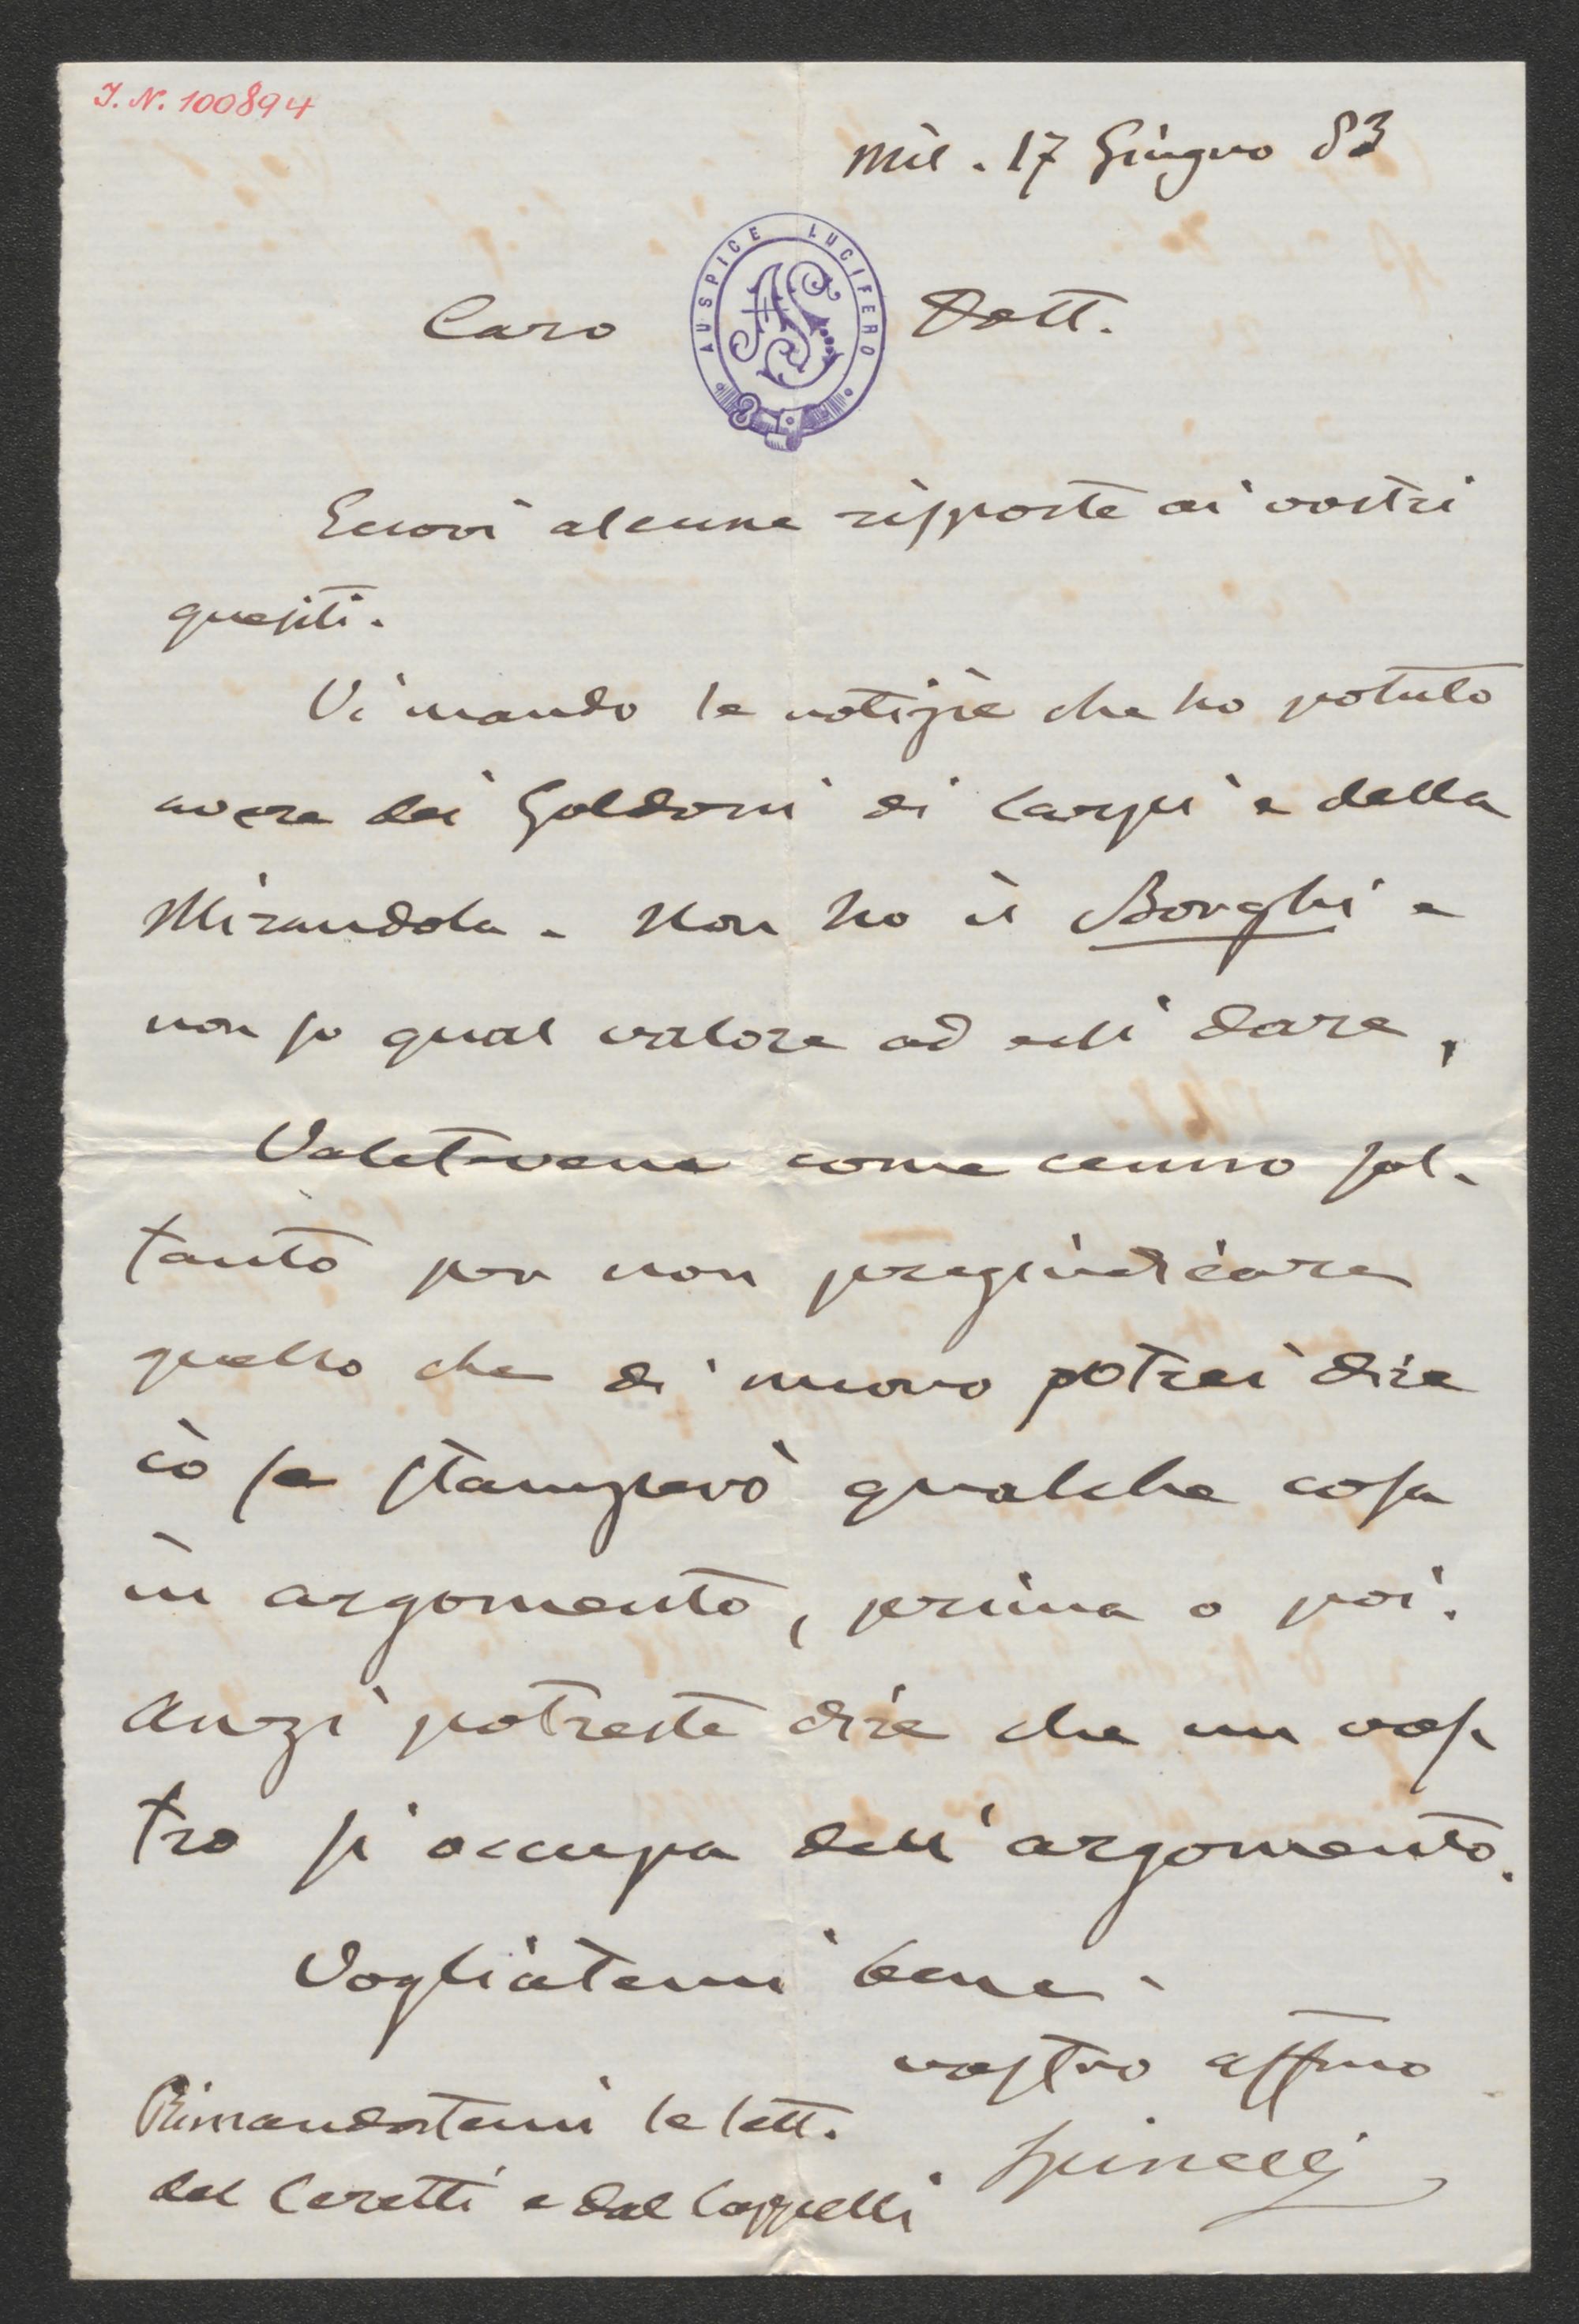 I. N. 100894
Mil. 17 Giugno 83
AUSPICE LUCIFERO
AS
Caro Dott.
Eccovi alcune risposte ai vostri
quesiti.
Vi mando le notizie che ho potuto
avere dei Goldoni di Carpi e della
Mirandola. Non ho il Borghi e
non so qual valore ad essi dare,
Valetevene come cenno sol-
tanto per non pregiudicare
quello che di nuovo potrei dire
io se stamperò qualche cosa
in argomento, prima o poi.
Anzi potreste dire che un vos
tro si occupa dell'argomento.
Vogliatemi bene.
vostro affmo
Spinelli
Rimandatemi le lett.
del Ceretti e dal Cappelli